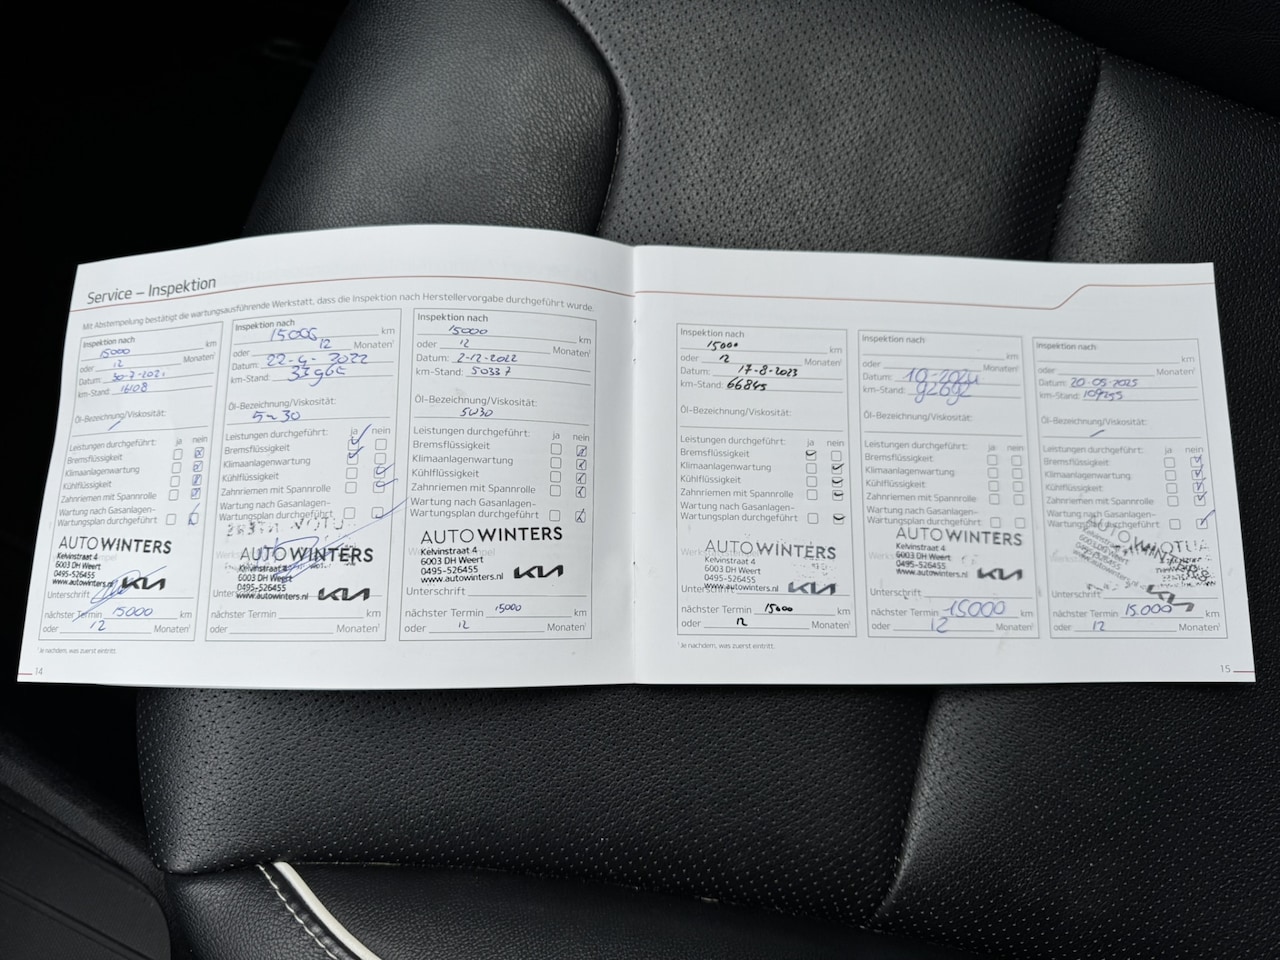 Service – Inspektion
Mit Abstempelung bestätigt die wartungsausführende Werkstatt, dass die Inspektion nach Herstellervorgabe durchgeführt wurde.
Inspektion nach
15000 km
oder 12 Monaten¹
Datum:
km-Stand: 16108
Öl-Bezeichnung/Viskosität:
Leistungen durchgeführt: ja nein
Bremsflüssigkeit
Klimaanlagenwartung
Kühlflüssigkeit
Zahnriemen mit Spannrolle
Wartung nach Gasanlagen-
Wartungsplan durchgeführt
AUTOWINTERS
Kelvinstraat 4
6003 DH Weert
0495-526455
www.autowinters.nl KIA
Unterschrift
nächster Termin 15000 km
oder 12 Monaten¹
Inspektion nach
km
oder 12 Monaten¹
Datum: 22-4-2022
km-Stand:
Öl-Bezeichnung/Viskosität:
5w30
Leistungen durchgeführt: ja nein
Bremsflüssigkeit
Klimaanlagenwartung
Kühlflüssigkeit
Zahnriemen mit Spannrolle
Wartung nach Gasanlagen-
Wartungsplan durchgeführt
AUTOWINTERS
Kelvinstraat 4
6003 DH Weert
0495-526455
www.autowinters.nl KIA
Unterschrift
nächster Termin km
oder Monaten¹
Inspektion nach
15000 km
oder 12 Monaten¹
Datum: 2-12-2022
km-Stand: 50337
Öl-Bezeichnung/Viskosität:
5W30
Leistungen durchgeführt: ja nein
Bremsflüssigkeit
Klimaanlagenwartung
Kühlflüssigkeit
Zahnriemen mit Spannrolle
Wartung nach Gasanlagen-
Wartungsplan durchgeführt
AUTOWINTERS
Kelvinstraat 4
6003 DH Weert
0495-526455
www.autowinters.nl KIA
Unterschrift
nächster Termin 15000 km
oder 12 Monaten¹
¹Je nachdem, was zuerst eintritt.
14
Inspektion nach
15000 km
oder 12 Monaten¹
Datum: 17-8-2023
km-Stand: 66845
Öl-Bezeichnung/Viskosität:
Leistungen durchgeführt: ja nein
Bremsflüssigkeit
Klimaanlagenwartung
Kühlflüssigkeit
Zahnriemen mit Spannrolle
Wartung nach Gasanlagen-
Wartungsplan durchgeführt
AUTOWINTERS
Kelvinstraat 4
6003 DH Weert
0495-526455
www.autowinters.nl KIA
Unterschrift
nächster Termin 15000 km
oder 12 Monaten¹
Inspektion nach
km
oder Monaten¹
Datum: 10-2024
km-Stand:
Öl-Bezeichnung/Viskosität:
Leistungen durchgeführt: ja nein
Bremsflüssigkeit
Klimaanlagenwartung
Kühlflüssigkeit
Zahnriemen mit Spannrolle
Wartung nach Gasanlagen-
Wartungsplan durchgeführt
AUTOWINTERS
Kelvinstraat 4
6003 DH Weert
0495-526455
www.autowinters.nl KIA
Unterschrift
nächster Termin 15000 km
oder 12 Monaten¹
Inspektion nach
km
oder Monaten¹
Datum: 20-05-2025
km-Stand: 109255
Öl-Bezeichnung/Viskosität:
Leistungen durchgeführt: ja nein
Bremsflüssigkeit
Klimaanlagenwartung
Kühlflüssigkeit
Zahnriemen mit Spannrolle
Wartung nach Gasanlagen-
Wartungsplan durchgeführt
Kelvinstraat 4
6003 DH Weert
0495-526455
KIA
Unterschrift
nächster Termin 15.000 km
oder 12 Monaten¹
¹Je nachdem, was zuerst eintritt.
15